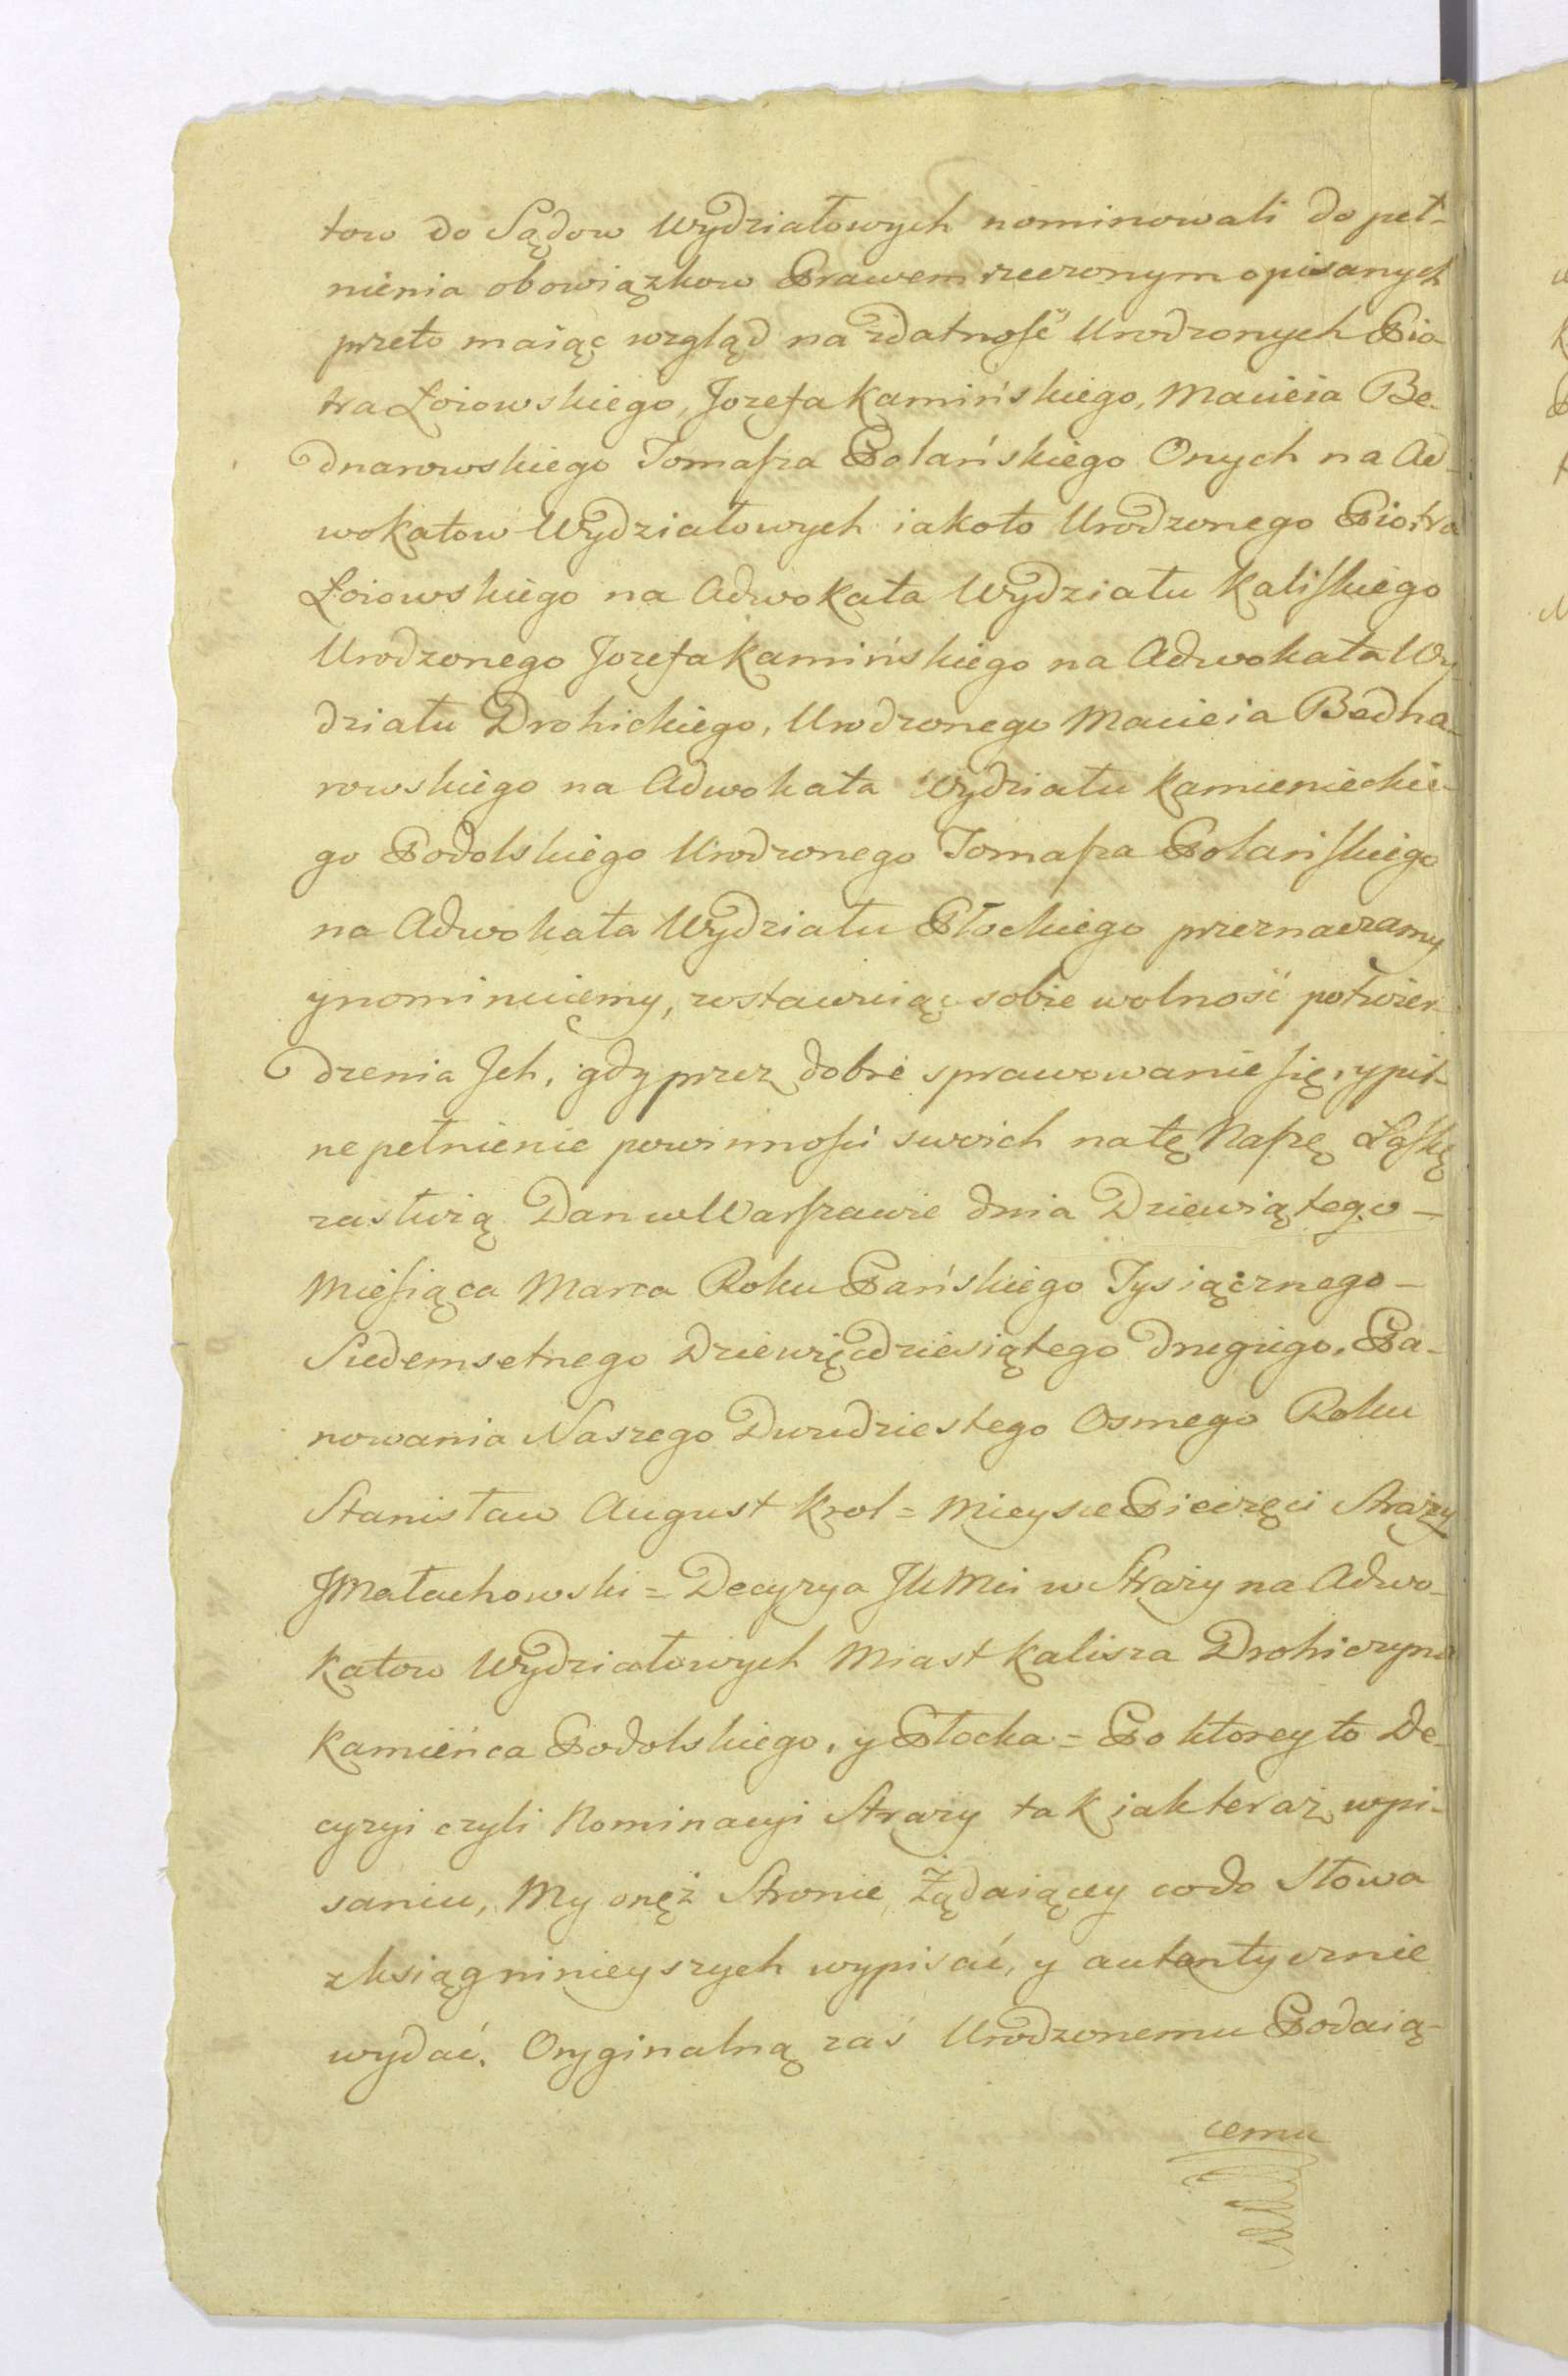 tow do Sądow Wydziałowych nominowali do peł-
nienia obowiązkow Prawem rzeczonym opisanych
przeto maiąc wzgląd na zdatność Urodzonych Pio-
tra Łoiowskiego, Jozefa Kamińskiego, Macieia Be-
dnarowskiego Tomasza Polańskiego Onych na Ad-
wokatow Wydziałowych iakoto Urodzonego Piotra
Łoiowskiego na Adwokata Wydziału Kaliskiego
Urodzonego Jozefa Kamińskiego na Adwokata Wy-
działu Drohickiego, Urodzonego Macieia Bedna-
rowskiego na Adwokata Wydziału Kamienieckie-
go Podolskiego Urodzonego Tomasza Polańskiego
na Adwokata Wydziału Płockiego przeznaczamy
y nominuiemy, zostawuiąc sobie wolność potwier-
dzenia Jch, gdy przez dobre sprawowanie się, y pil-
ne pełnienie powinności swoich na tę Naszę Łaskę
zasłużą Dan w Warszawie dnia Dziewiątego –
Miesiąca Marca Roku Pańskiego Tysiącznego –
Siedemsetnego Dziewięćdziesiątego Drugiego. Pa-
nowania Naszego Dwudziestego Osmego Roku
Stanisław August Krol = Mieysce Pieczęci Straży
JMałachowski = Decyzya JKMci w Straży na Adwo-
katow Wydziałowych Miast Kalisza Drohiczyna
Kamieńca Podolskiego, y Płocka = Po ktorey to De-
cyzyi czyli Nominacyi Straży tak iak teraz wpi-
saniu, My onęż Stronie Żądaiącey co do Słowa
z ksiąg ninieyszych wypisać, y autentycznie
wydać. Oryginalną zaś Urodzonemu Podaią-
cemu